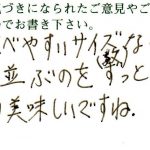 気づきになられたご意見やご
でお書き下さい。
べやすいサイズな
並ぶのをずっと
り美味しいですね。